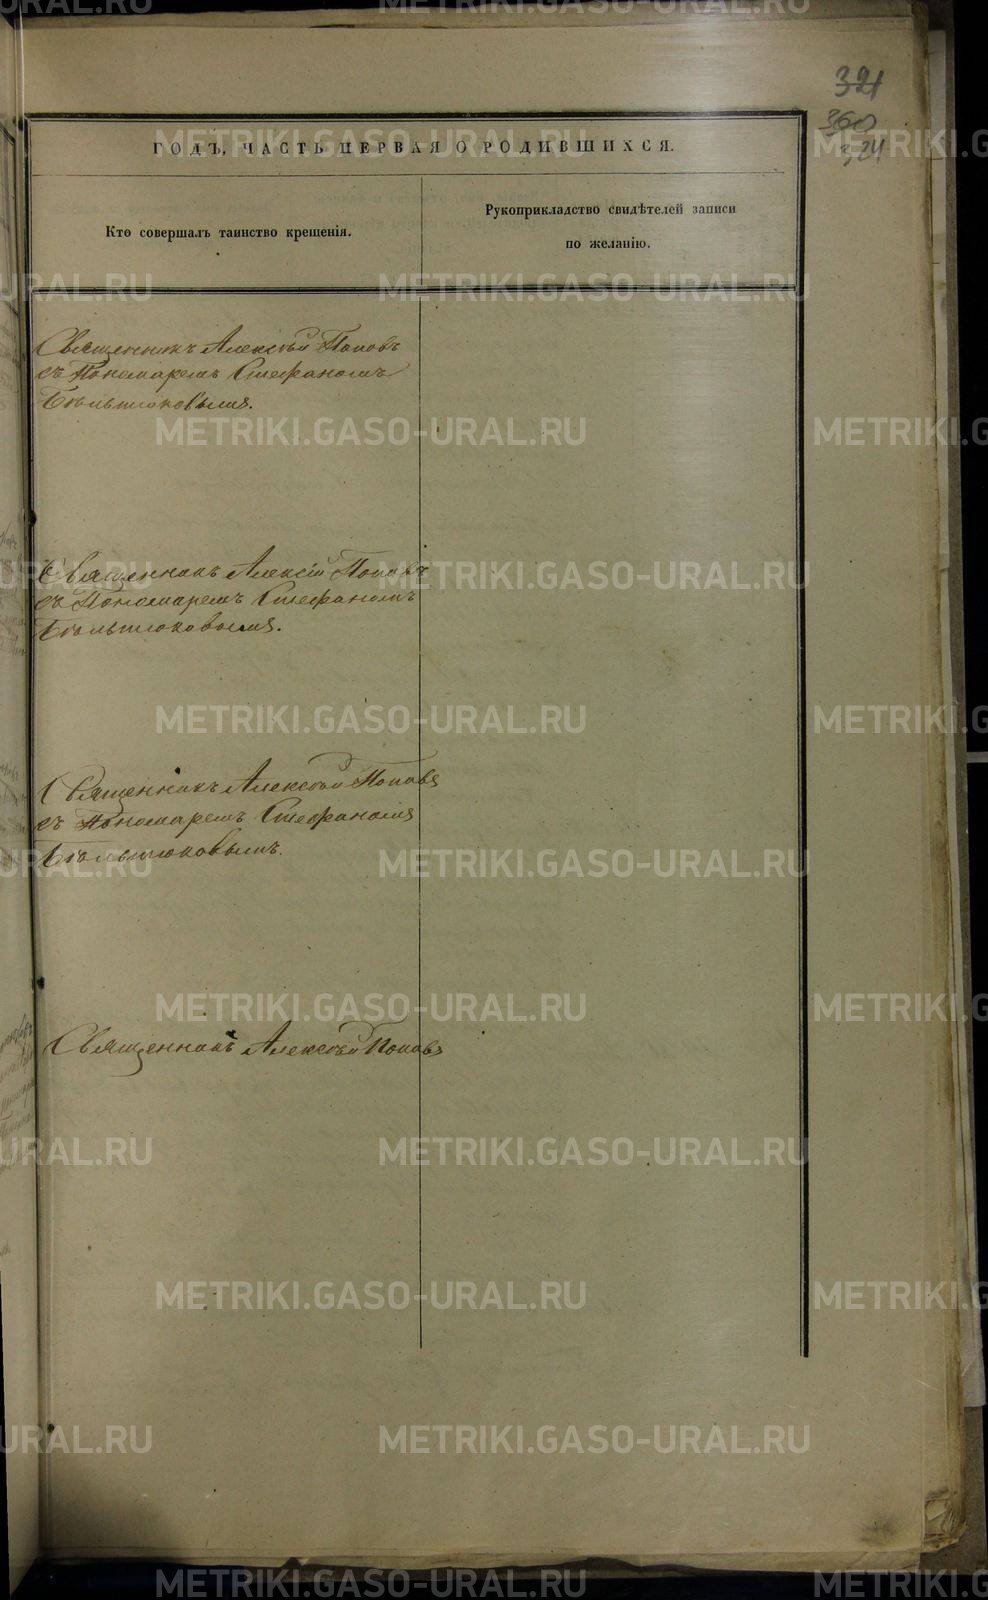 321
360
324
ГОДЪ, ЧАСТЬ ПЕРВАЯ О РОДИВШИХСЯ.
Кто совершалъ таинство крещенія.
Рукоприкладство свидѣтелей записи
по желанію.
Священникъ Алексѣй Поповъ
съ Пономаремъ Стефаномъ
Священникъ Алексій Поповъ
съ Пономаремъ Стефаномъ
Священникъ Алексѣй Поповъ
съ Пономаремъ Стефаномъ
Священникъ Алексѣй Поповъ
METRIKI.GASO-URAL.RU